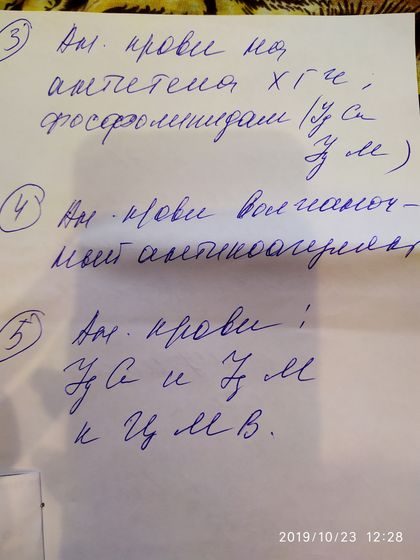 3 Ан. крови на
антитела ХГЧ;
фосфолипидам (Ig G
Ig M)
4 Ан. крови Волчаноч-
ный антикоагулянт
5 Ан. крови:
Ig G и Ig M
к ЦМВ.
2019/10/23 12:28